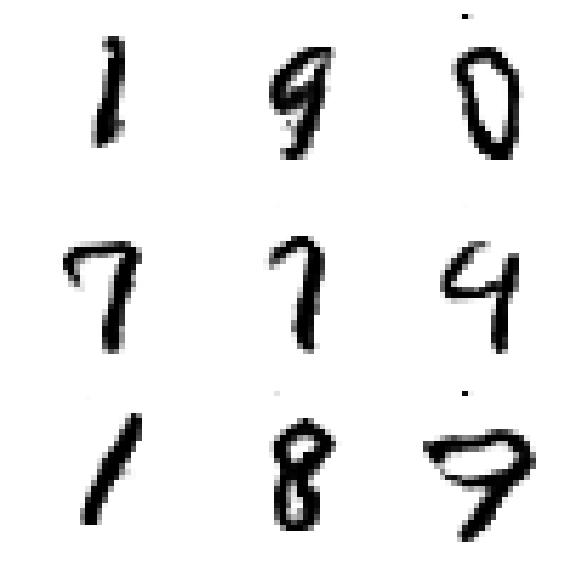 1 9 0
7 7 4
1 8 9